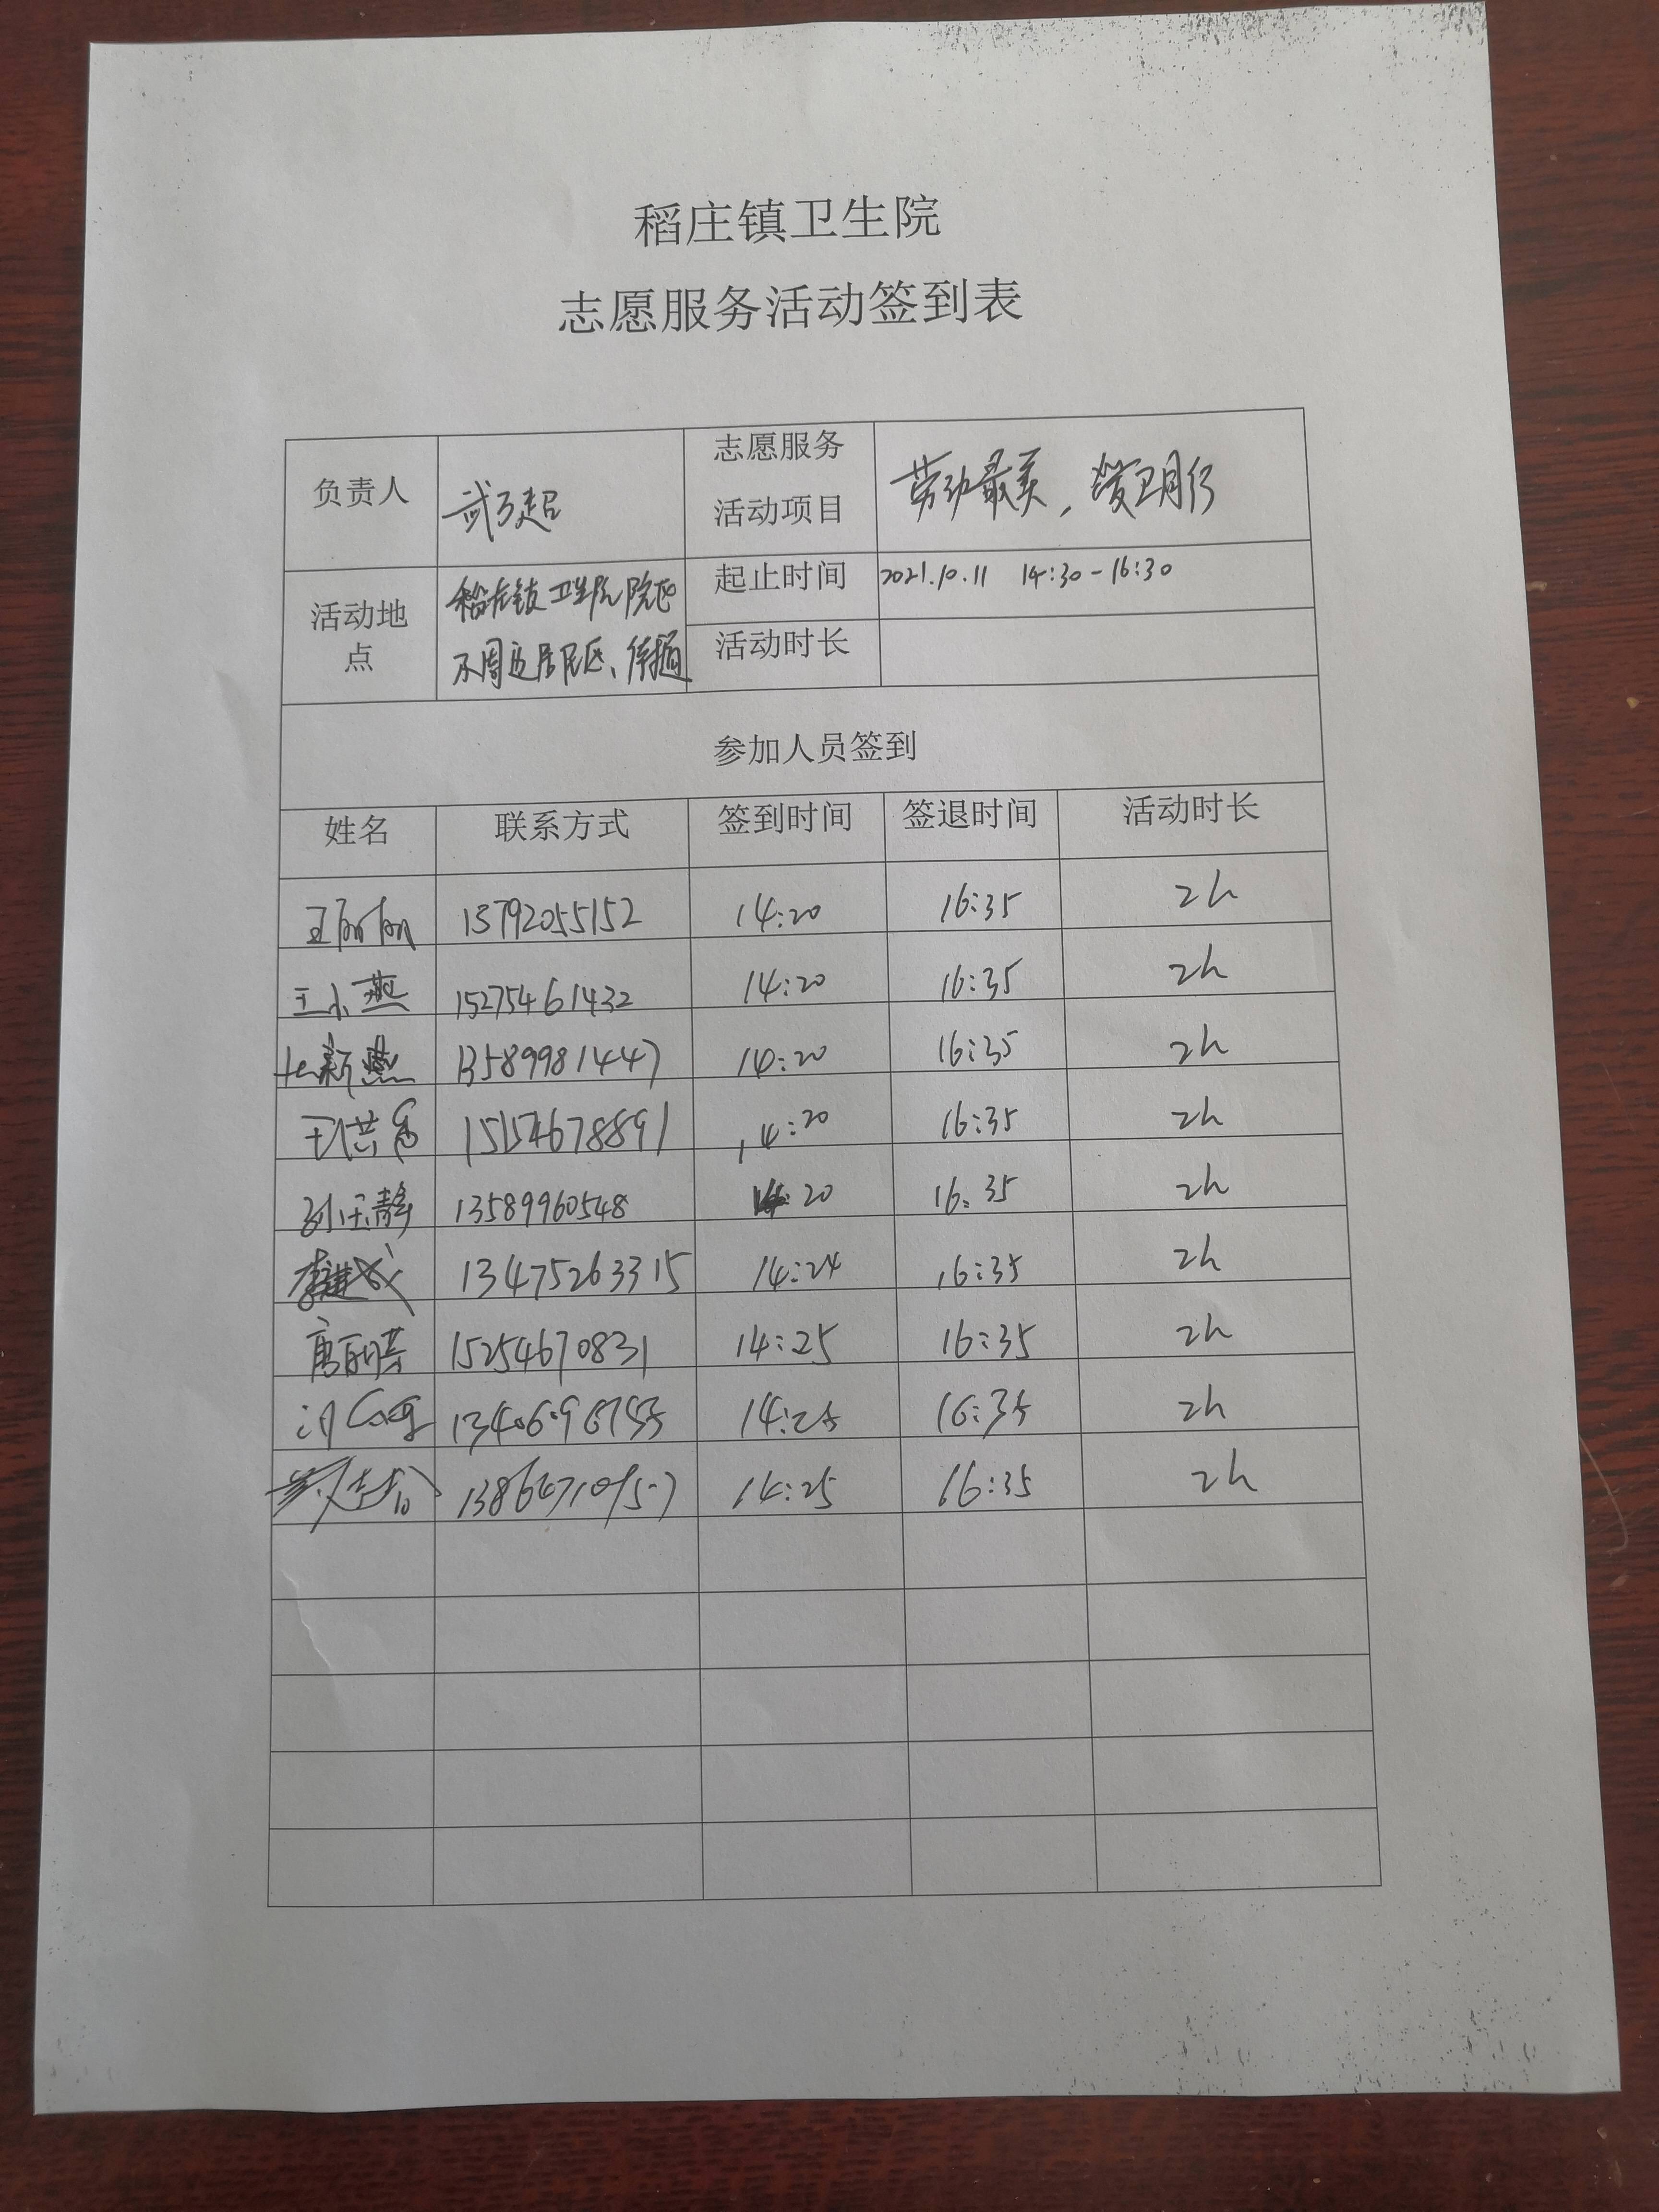 稻庄镇卫生院
志愿服务活动签到表
负责人 志愿服务 活动项目 劳动最美,
活动地点 稻庄镇卫生院院区 周边居民区、 起止时间 2021.10.11 14:30-16:30
活动时长
参加人员签到
姓名 联系方式 签到时间 签退时间 活动时长
王丽丽 13792055152 14:20 16:35 2h
王小燕 15275461432 14:20 16:35 2h
新燕 13589981447 14:20 16:35 2h
王洪 15154678891 14:20 16:35 2h
孙玉静 13589960548 14:20 16:35 2h
李建 13475263315 14:24 16:35 2h
唐 15254670831 14:25 16:35 2h
14:25 16:35 2h
14:25 16:35 2h